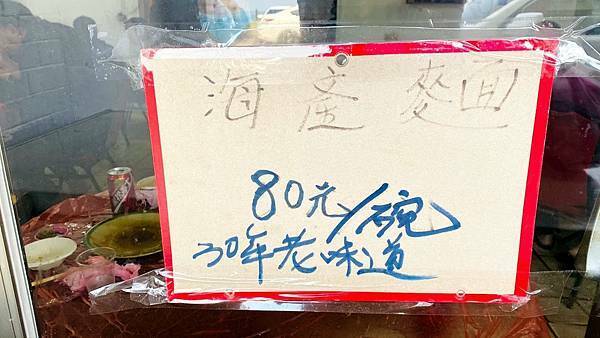 海產麵
80元/碗
30年老味道